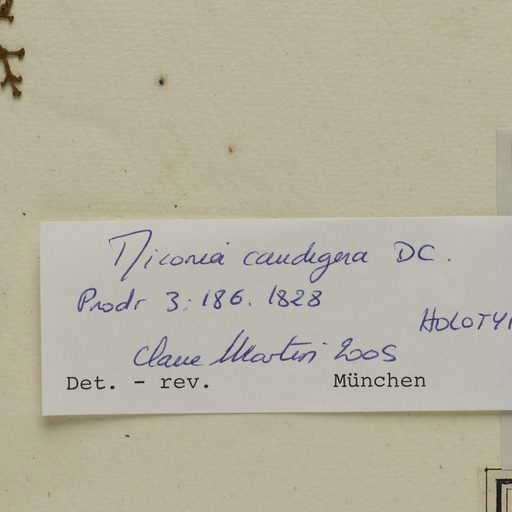 Miconia caudigera DC.
Prodr 3: 186. 1828
HOLOTY
Claire Martin 2005
Det. - rev. München